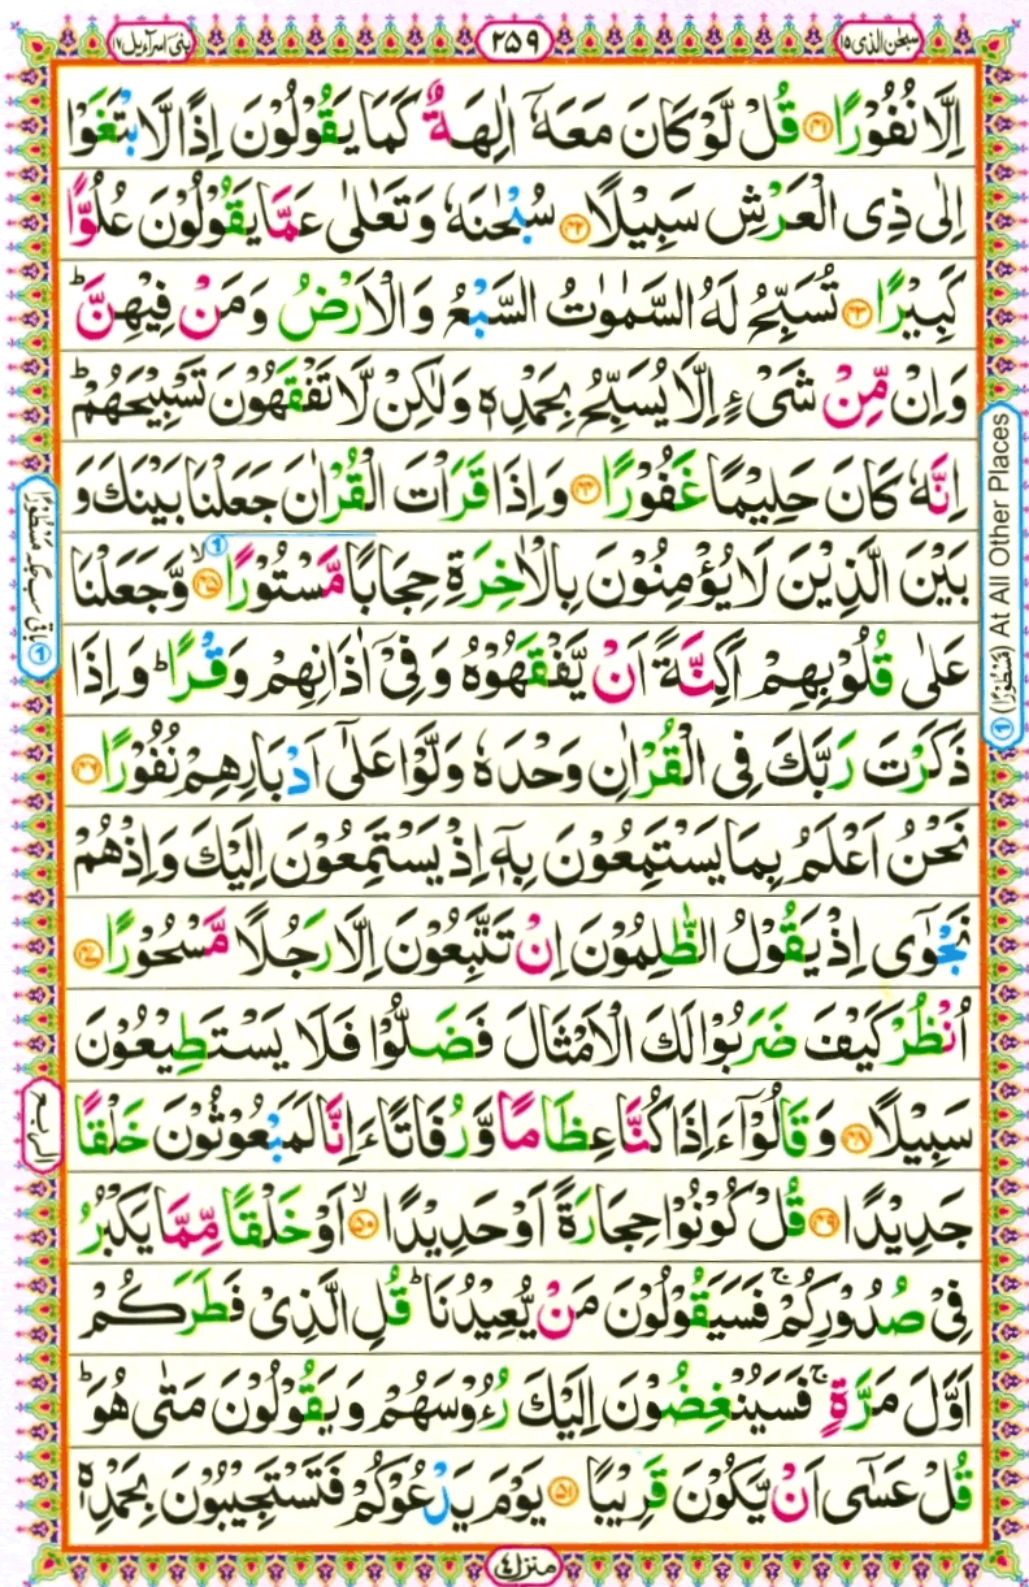 سبحٰن الذی ۱۵
۲۵۹
بنی اسرآءیل ۱۷
اِلَّا نُفُوْرًا ﴿۴۱﴾ قُلْ لَّوْ كَانَ مَعَهٗۤ اٰلِهَةٌ كَمَا یَقُوْلُوْنَ اِذًا لَّابْتَغَوْا
اِلٰى ذِی الْعَرْشِ سَبِیْلًا ﴿۴۲﴾ سُبْحٰنَهٗ وَ تَعٰلٰى عَمَّا یَقُوْلُوْنَ عُلُوًّا
كَبِیْرًا ﴿۴۳﴾ تُسَبِّحُ لَهُ السَّمٰوٰتُ السَّبْعُ وَ الْاَرْضُ وَ مَنْ فِیْهِنَّ ؕ
وَ اِنْ مِّنْ شَیْءٍ اِلَّا یُسَبِّحُ بِحَمْدِهٖ وَ لٰكِنْ لَّا تَفْقَهُوْنَ تَسْبِیْحَهُمْ ؕ
اِنَّهٗ كَانَ حَلِیْمًا غَفُوْرًا ﴿۴۴﴾ وَ اِذَا قَرَاْتَ الْقُرْاٰنَ جَعَلْنَا بَیْنَكَ وَ
بَیْنَ الَّذِیْنَ لَا یُؤْمِنُوْنَ بِالْاٰخِرَةِ حِجَابًا مَّسْتُوْرًا ۙ﴿۴۵﴾ ① وَّ جَعَلْنَا
عَلٰى قُلُوْبِهِمْ اَكِنَّةً اَنْ یَّفْقَهُوْهُ وَ فِیْۤ اٰذَانِهِمْ وَقْرًا ؕ وَ اِذَا
ذَكَرْتَ رَبَّكَ فِی الْقُرْاٰنِ وَحْدَهٗ وَلَّوْا عَلٰۤى اَدْبَارِهِمْ نُفُوْرًا ﴿۴۶﴾
نَحْنُ اَعْلَمُ بِمَا یَسْتَمِعُوْنَ بِهٖۤ اِذْ یَسْتَمِعُوْنَ اِلَیْكَ وَ اِذْ هُمْ
نَجْوٰۤى اِذْ یَقُوْلُ الظّٰلِمُوْنَ اِنْ تَتَّبِعُوْنَ اِلَّا رَجُلًا مَّسْحُوْرًا ﴿۴۷﴾
اُنْظُرْ كَیْفَ ضَرَبُوْا لَكَ الْاَمْثَالَ فَضَلُّوْا فَلَا یَسْتَطِیْعُوْنَ
سَبِیْلًا ﴿۴۸﴾ وَ قَالُوْۤا ءَاِذَا كُنَّا عِظَامًا وَّ رُفَاتًا ءَاِنَّا لَمَبْعُوْثُوْنَ خَلْقًا
جَدِیْدًا ﴿۴۹﴾ قُلْ كُوْنُوْا حِجَارَةً اَوْ حَدِیْدًا ۙ﴿۵۰﴾ اَوْ خَلْقًا مِّمَّا یَكْبُرُ
فِیْ صُدُوْرِكُمْ ۚ فَسَیَقُوْلُوْنَ مَنْ یُّعِیْدُنَا ؕ قُلِ الَّذِیْ فَطَرَكُمْ
اَوَّلَ مَرَّةٍ ۚ فَسَیُنْغِضُوْنَ اِلَیْكَ رُءُوْسَهُمْ وَ یَقُوْلُوْنَ مَتٰى هُوَ ؕ
قُلْ عَسٰۤى اَنْ یَّكُوْنَ قَرِیْبًا ﴿۵۱﴾ یَوْمَ یَدْعُوْكُمْ فَتَسْتَجِیْبُوْنَ بِحَمْدِهٖ
① (مَسْطُوْرًا) At All Other Places
① باقی سب جگہ مَسْطُوْرًا
الربع
منزل ۴